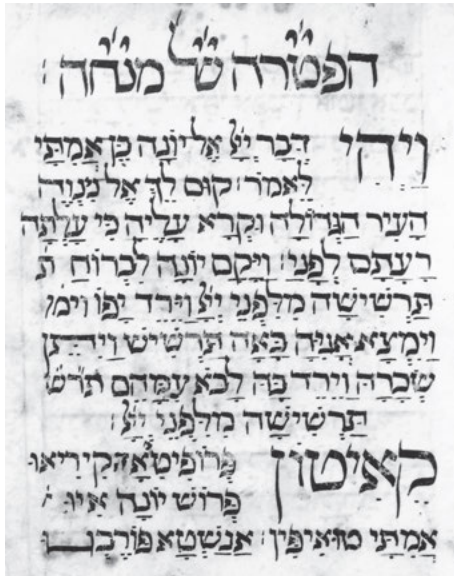 הפטרה של מנחה :
וַיְהִי דְּבַר יְיָ אֶל יוֹנָה בֶן אֲמִתַּי
לֵאמֹר׃ קוּם לֵךְ אֶל נִנְוֵה
הָעִיר הַגְּדוֹלָה וּקְרָא עָלֶיהָ כִּי עָלְתָה
רָעָתָם לְפָנָי׃ וַיָּקָם יוֹנָה לִבְרוֹחַ ת
תַּרְשִׁישָׁה מִלִּפְנֵי יְיָ וַיֵּרֶד יָפוֹ וימ
וַיִּמְצָא אֳנִיָּה בָּאָה תַרְשִׁישׁ וַיִּתֵּן
שְׂכָרָהּ וַיֵּרֶד בָּהּ לָבֹא עִמָּהֶם תרש
תַּרְשִׁישָׁה מִלִּפְנֵי יְיָ׃
קאיטון פרופיטאה קיריאו
פרוש יונה איו
אמתי טואיפין׃ אנשטא